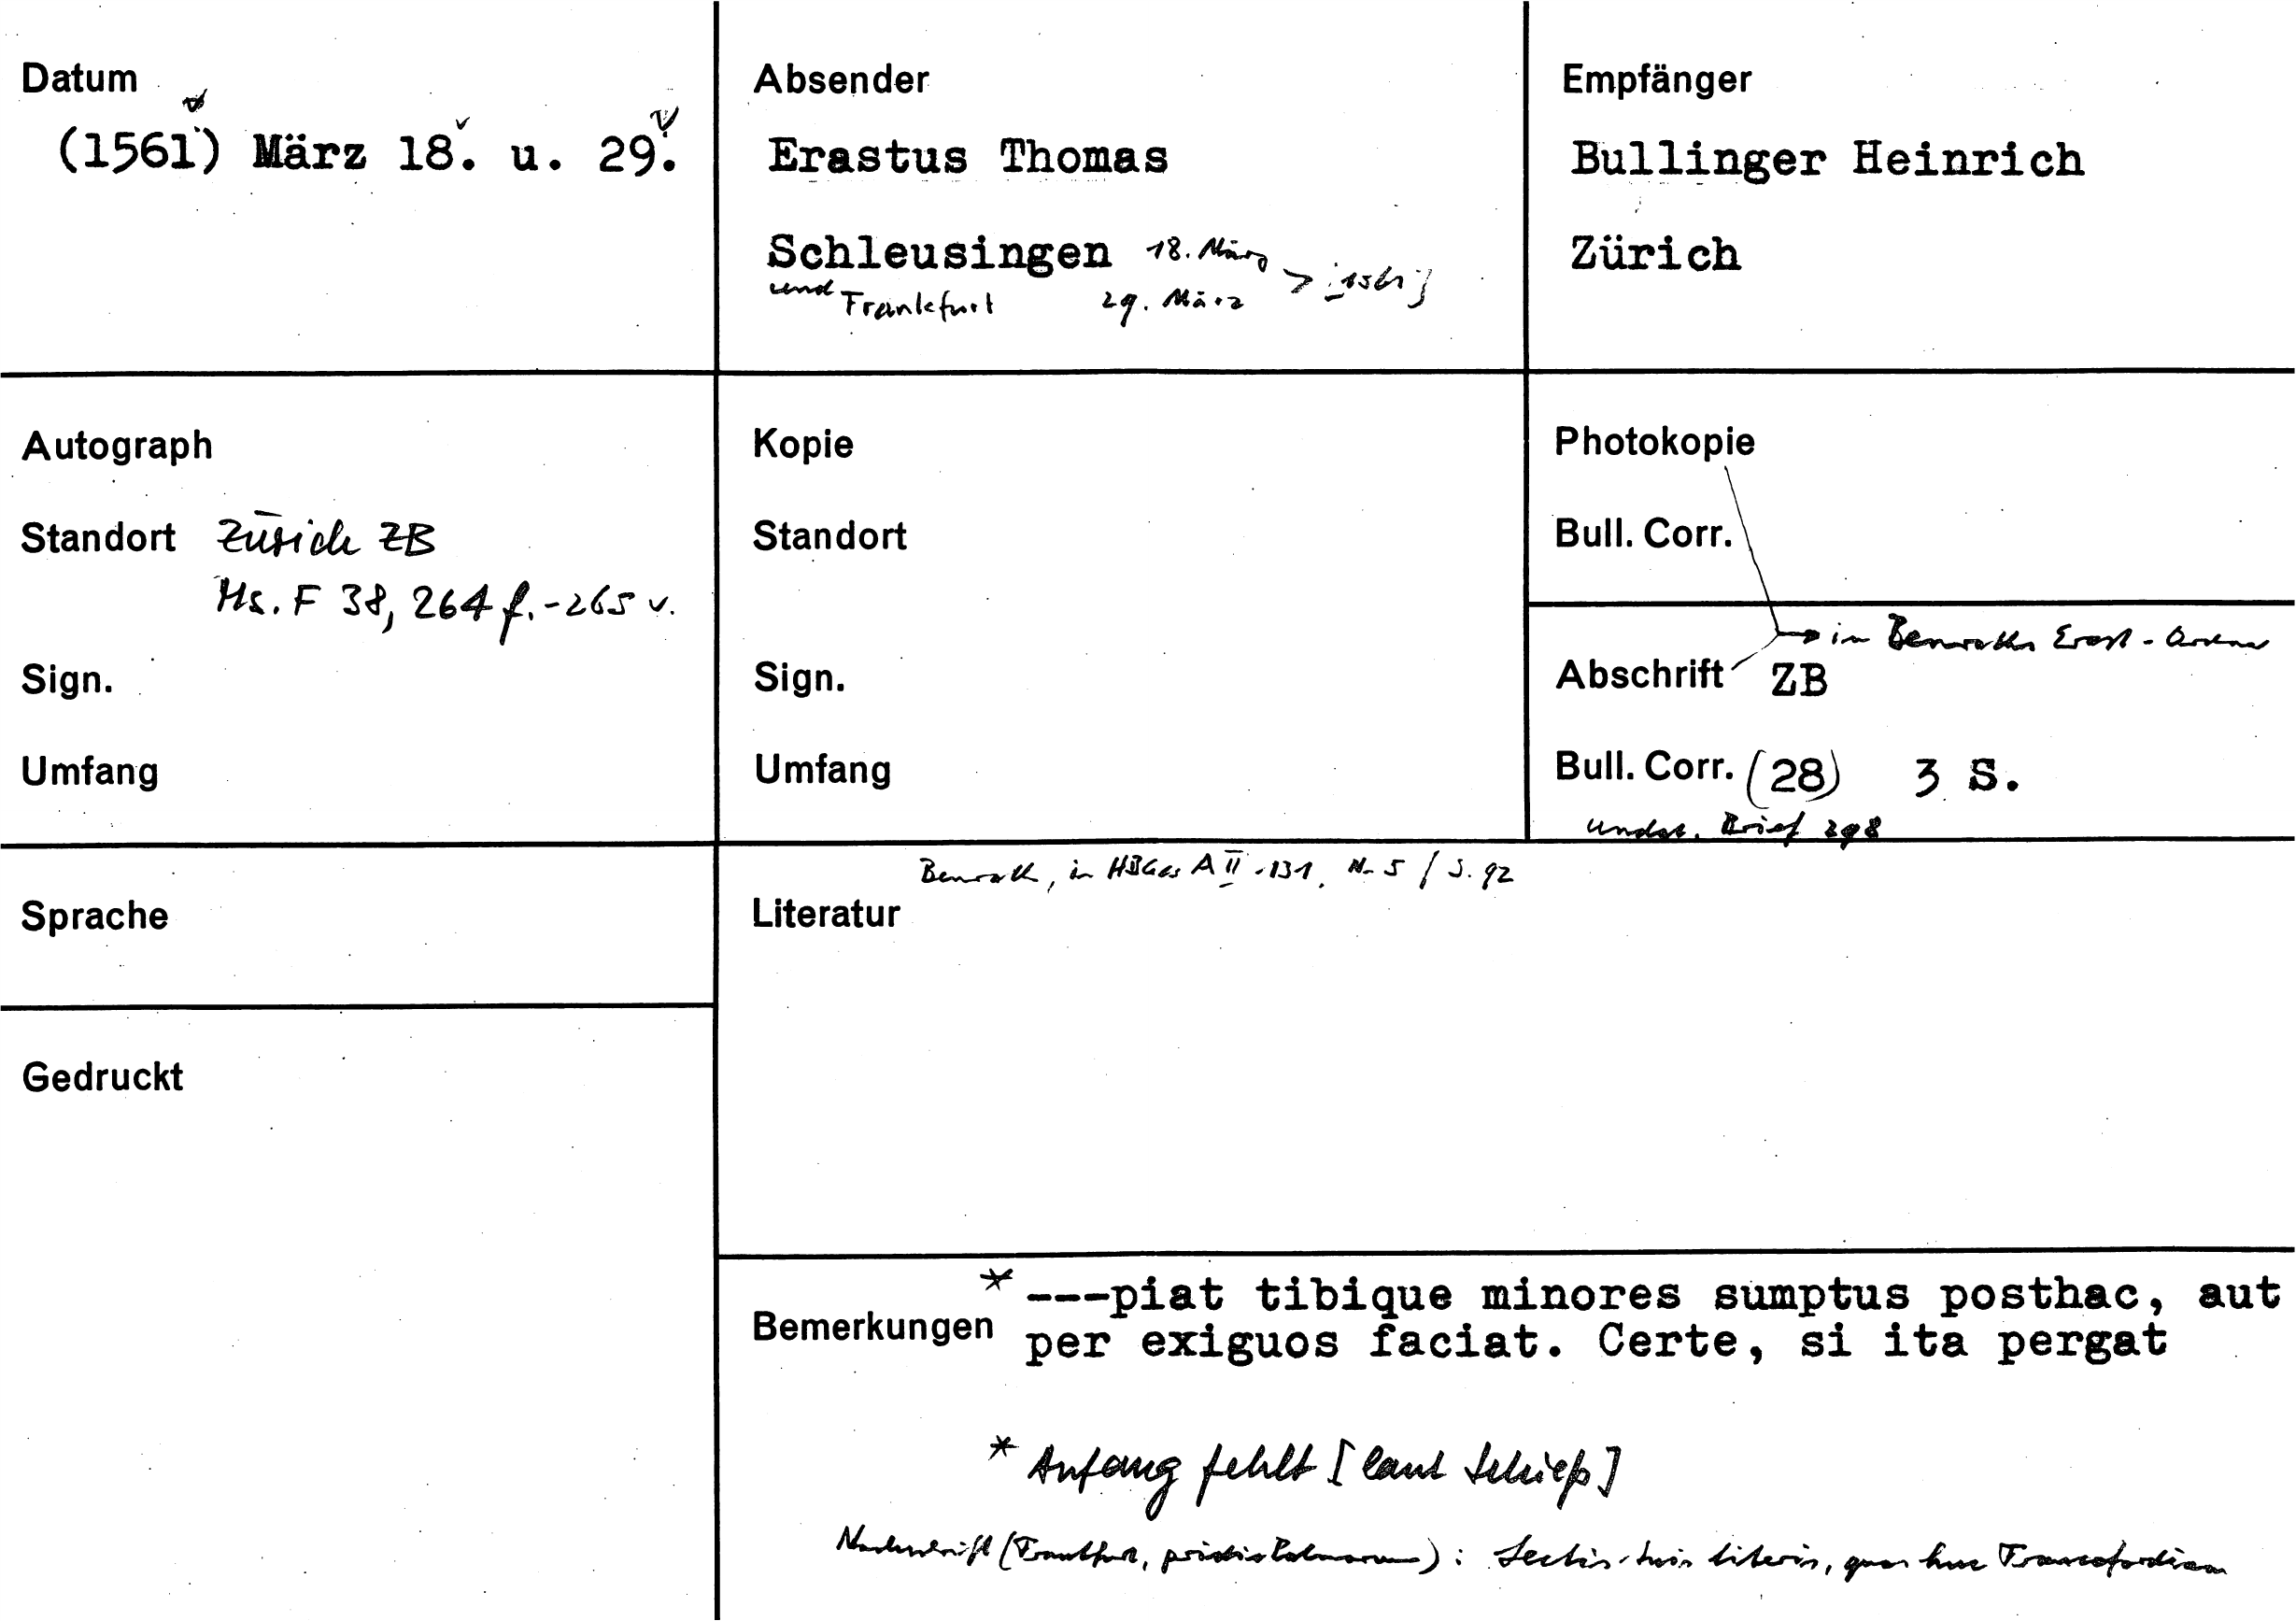 Datum
(1561) März 18. u. 29.
Absender
Erastus Thomas
Schleusingen 18. März > [1561]
und Frankfurt 29. März
Empfänger
Bullinger Heinrich
Zürich
Autograph
Standort Zürich ZB
Ms. F 38, 264 f. - 265 v.
Sign.
Umfang
Kopie
Standort
Sign.
Umfang
Photokopie
Bull. Corr.
→ in Benraths Erast-
Abschrift ZB
Bull. Corr. (28) 3 S.
undat. Brief 298
Sprache
Gedruckt
Benrath, in HBGes A II, 131, Nr 5 / S. 92
Literatur
Bemerkungen
* ---piat tibique minores sumptus posthac, aut
per exiguos faciat. Certe, si ita pergat
* Anfang fehlt [laut Schieß]
Nachschrift (Frankfurt, pridie Palmarum): Lectis tuis literis, quas huc Francofordiam